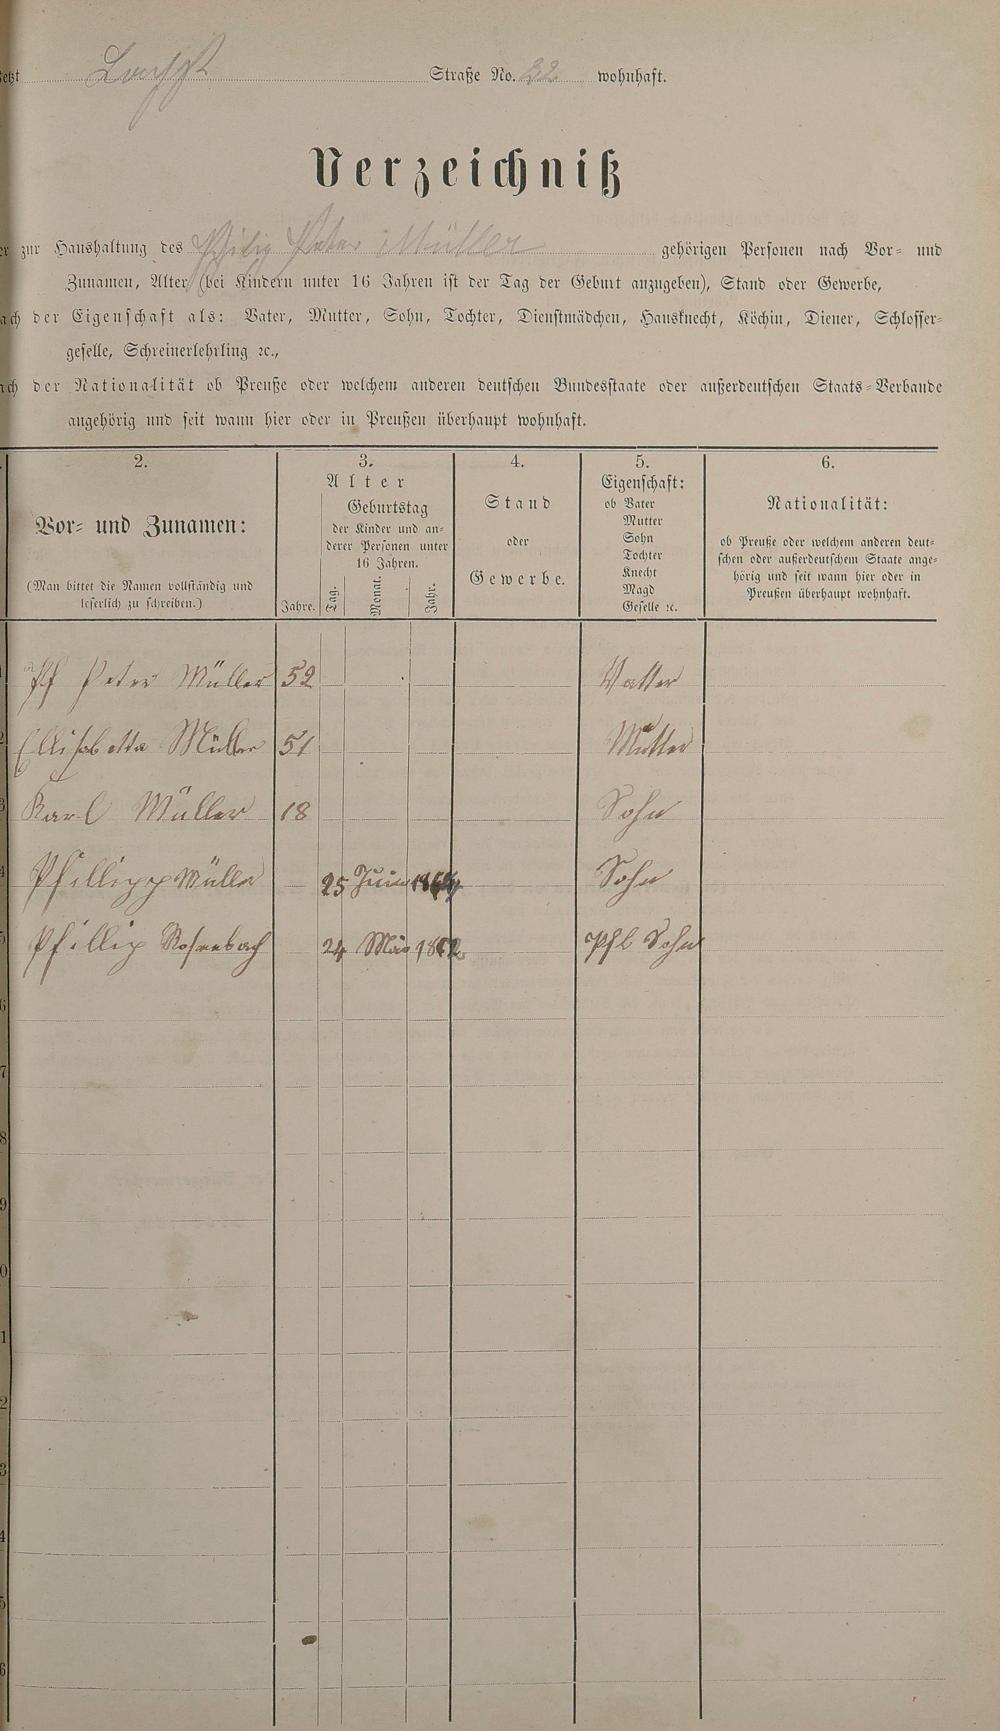 Straße No. 32 wohnhaft.
Verzeichniß
zur Haushaltung des Philip Peter Müller gehörigen Personen nach Vor- und
Zunamen, Alter (bei Kindern unter 16 Jahren ist der Tag der Geburt anzugeben), Stand oder Gewerbe,
der Eigenschaft als: Vater, Mutter, Sohn, Tochter, Dienstmädchen, Hausknecht, Köchin, Diener, Schlosser-
geselle, Schreinerlehrling ꝛc.,
der Nationalität ob Preuße oder welchem anderen deutschen Bundesstaate oder außerdeutschen Staats-Verbande
angehörig und seit wann hier oder in Preußen überhaupt wohnhaft.
2. 3. 4. 5. 6.
Vor- und Zunamen:
(Man bittet die Namen vollständig und
leserlich zu schreiben.)
Alter
Jahre.
Geburtstag
der Kinder und an-
derer Personen unter
16 Jahren.
Tag. Monat. Jahr.
Stand
oder
Gewerbe.
Eigenschaft:
ob Vater
Mutter
Sohn
Tochter
Knecht
Magd
Geselle ꝛc.
Nationalität:
ob Preuße oder welchem anderen deut-
schen oder außerdeutschem Staate ange-
hörig und seit wann hier oder in
Preußen überhaupt wohnhaft.
Pf Peter Müller 52 Vatter
Ellisabetta Müller 51 Mutter
Karl Müller 18 Sohn
Phillipp Müller 25 Sohn
Phillip Rosenbach 24 Sohn